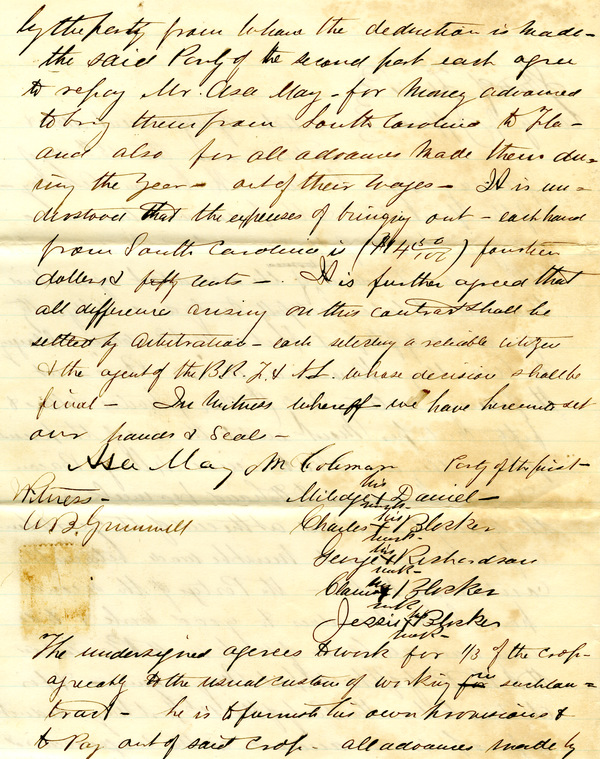 by the party from whom the deduction is made -
the said Party of the second part each agree
to repay Mr. Asa May - for Money advanced
to bring them from South Carolina to Fla -
and also for all advances made them du=
ring the Year - out of their wages - It is un=
derstood that the expenses of bringing out - each hand
from South Carolina is ($14 50/100) fourteen
dollars & fifty cents - . It is further agreed that
all difference arising on this contract shall be
settled by arbitration - each selecting a reliable citizen
& the agent of the B.R. F. & A L. whose decision shall be
final - In Witness whereoff we have hereunto set
our hands & Seals -
Asa May M Coleman Party of the first -
Witness -
W. B. Grunwell
Miledge his x mark Daniel -
Charles his x mark Blocker
George his x mark Richardson
his x mark Blocker
Jessie his x mark Blocker
The undersigned agrees to work for 1/3 of the crop -
agreably to the usual custom of working in such con=
tract - he is to furnish his own provisions &
to Pay out of said Crop - all advances made by